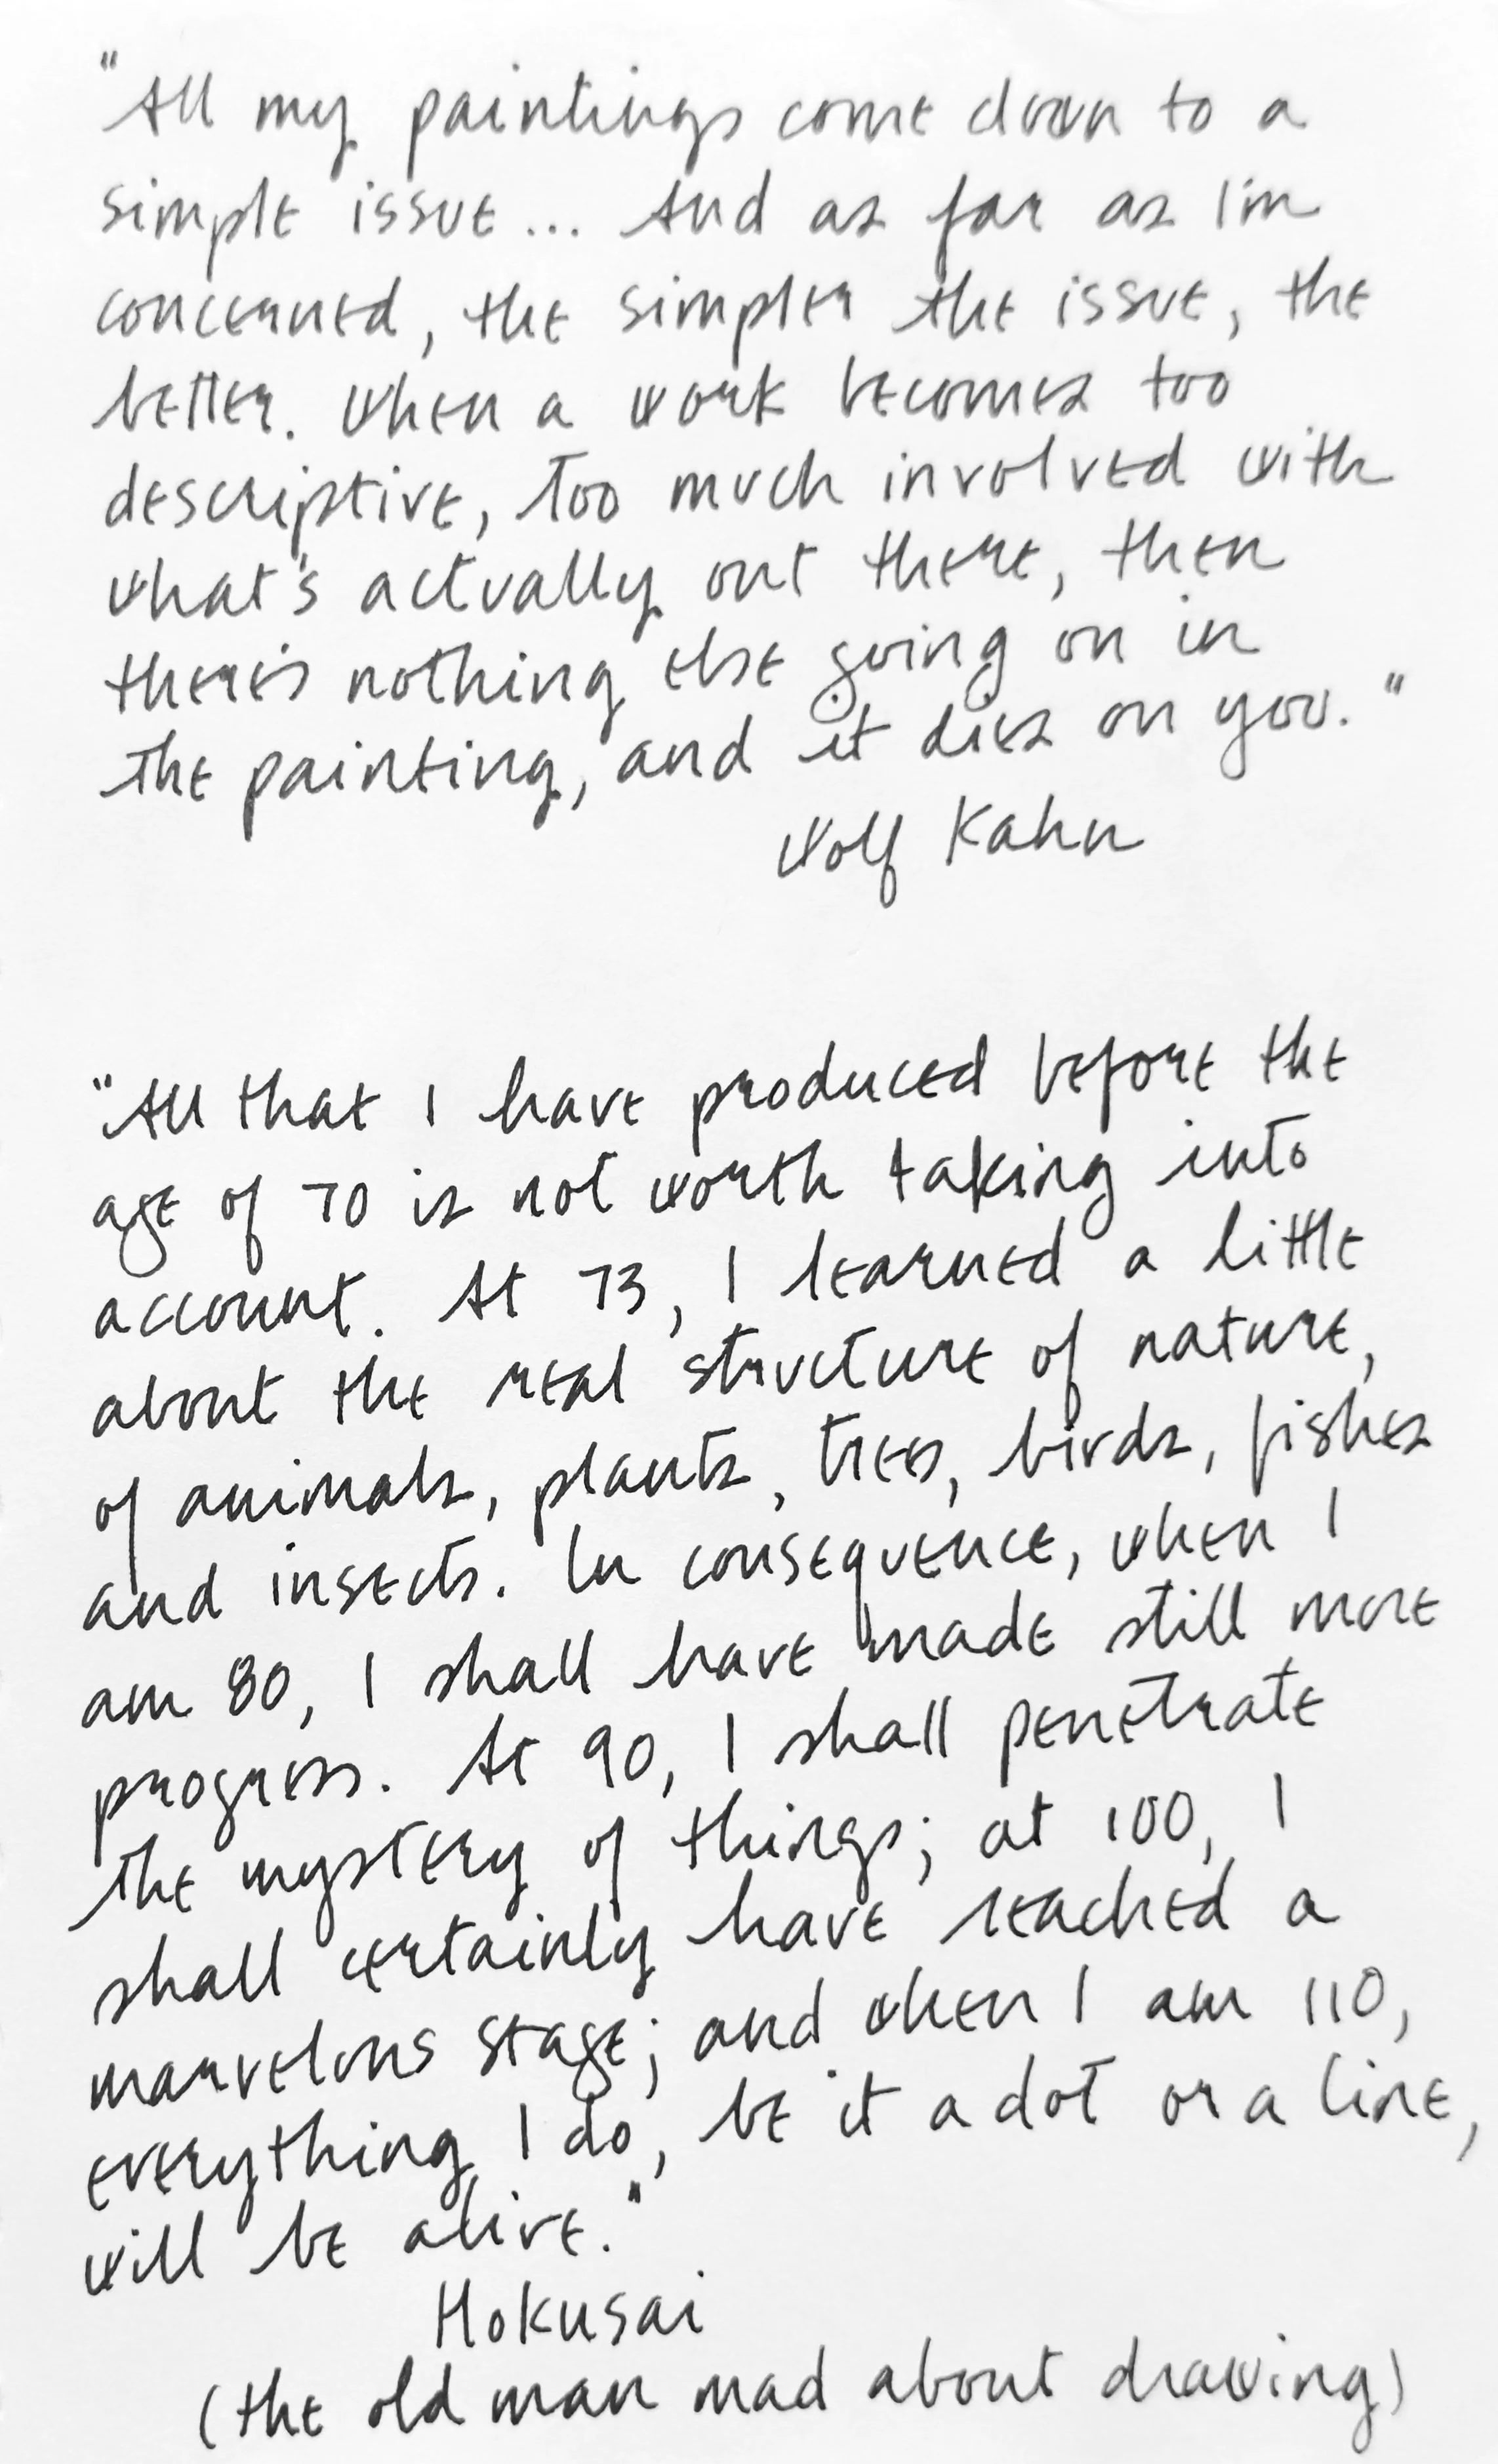 "All my paintings come down to a
simple issue... And as far as I'm
concerned, the simpler the issue, the
better. When a work becomes too
descriptive, too much involved with
what's actually out there, then
there's nothing else going on in
the painting, and it dies on you."
Wolf Kahn
"All that I have produced before the
age of 70 is not worth taking into
account. At 73, I learned a little
about the real structure of nature,
of animals, plants, trees, birds, fishes
and insects. In consequence, when I
am 80, I shall have made still more
progress. At 90, I shall penetrate
the mystery of things; at 100, I
shall certainly have reached a
marvelous stage; and when I am 110,
everything I do, be it a dot or a line,
will be alive."
Hokusai
(the old man mad about drawing)